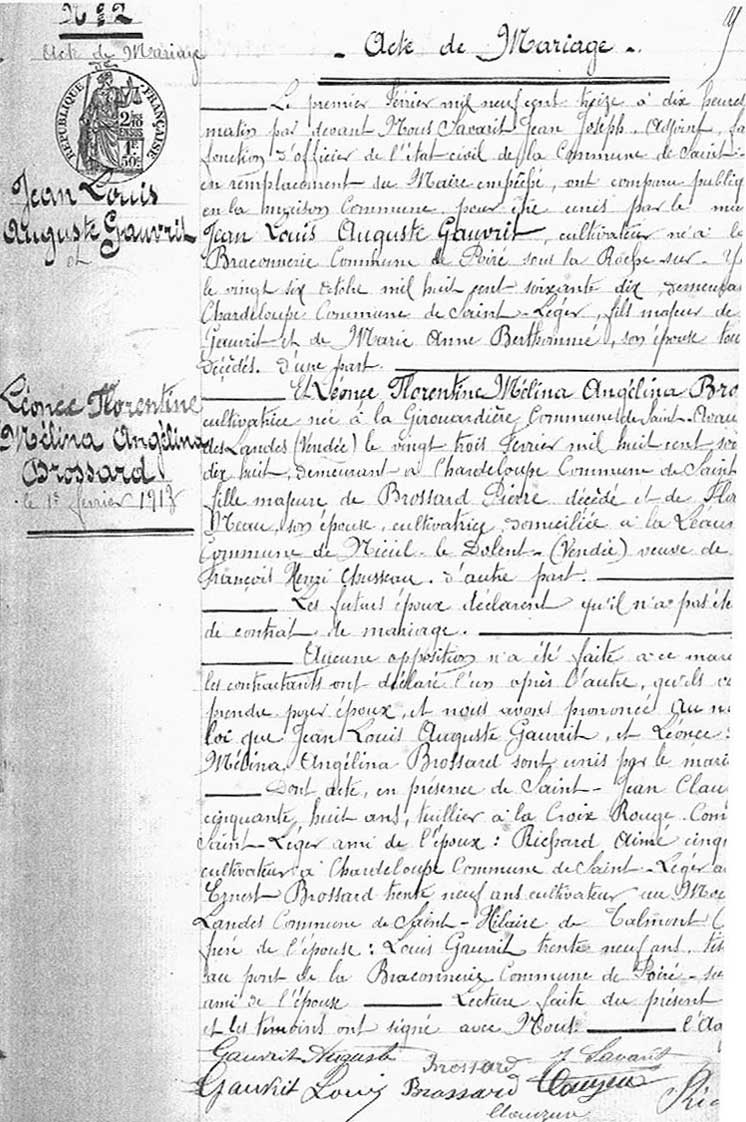 N° 2
Acte de Mariage
RÉPUBLIQUE FRANÇAISE
2/10 EN SUS
1F 50c
Jean Louis
Auguste Gauvrit
et
Léonce Florentine
Mélina Angélina
Brossard
le 1er février 1913
Acte de Mariage
Le premier février mil neuf cent treize à dix heures
matin par devant Nous Savarit Jean Joseph Adjoint, fa
fonction d'officier de l'état civil de la Commune de Saint-
en remplacement du Maire empêché, ont comparu publiq
en la maison Commune pour être unis par le ma
Jean Louis Auguste Gauvrit, cultivateur né à l
Braconnerie Commune de Poiré sous la Roche-sur-Y
le vingt six octobre mil huit cent soixante dix, demeura
Chardeloupe Commune de Saint-Léger, fils majeur de
Gauvrit et de Marie Anne Berthommé, son épouse tou
décédés. d'une part.
Et Léonce Florentine Mélina Angélina Bro
cultivatrice née à la Girouardière Commune de Saint-Avau
des Landes (Vendée) le vingt trois février mil huit cent soi
dix huit, demeurant à Chardeloupe Commune de Saint
fille majeure de Brossard Pierre décédé et de Flo
Neau, son épouse, cultivatrice, domiciliée à la
Commune de Nieul-le Dolent-(Vendée) veuve de
François Henri Chusseau. d'autre part.
Les futurs époux déclarent qu'il n'a pas été
de contrat de mariage.
Aucune opposition n'a été faite à ce mari
les contractants ont déclaré l'un après l'autre, qu'ils v
prendre pour époux, et nous avons prononcé au n
loi que Jean Louis Auguste Gauvrit, et Léonce
Mélina Angélina Brossard sont unis par le mari
Dont acte, en présence de Saint-Jean Clau
cinquante huit ans, tuillier à la Croix Rouge. Com
Saint-Léger ami de l'époux: Richard Aimé cinq
cultivateur à Chardeloupe Commune de Saint-Léger a
Ernest Brossard trente neuf ans cultivateur au
Landes Commune de Saint-Hilaire de Talmont (
frère de l'épouse: Louis Gauvrit trente neuf ans,
au pont de la Braconnerie Commune de Poiré-su
ami de l'épouse Lecture faite du présent
et les témoins ont signé avec Nous. l'a
Gauvrit Auguste Brossard J Savarit
Gauvrit Louis Brossard
Ric